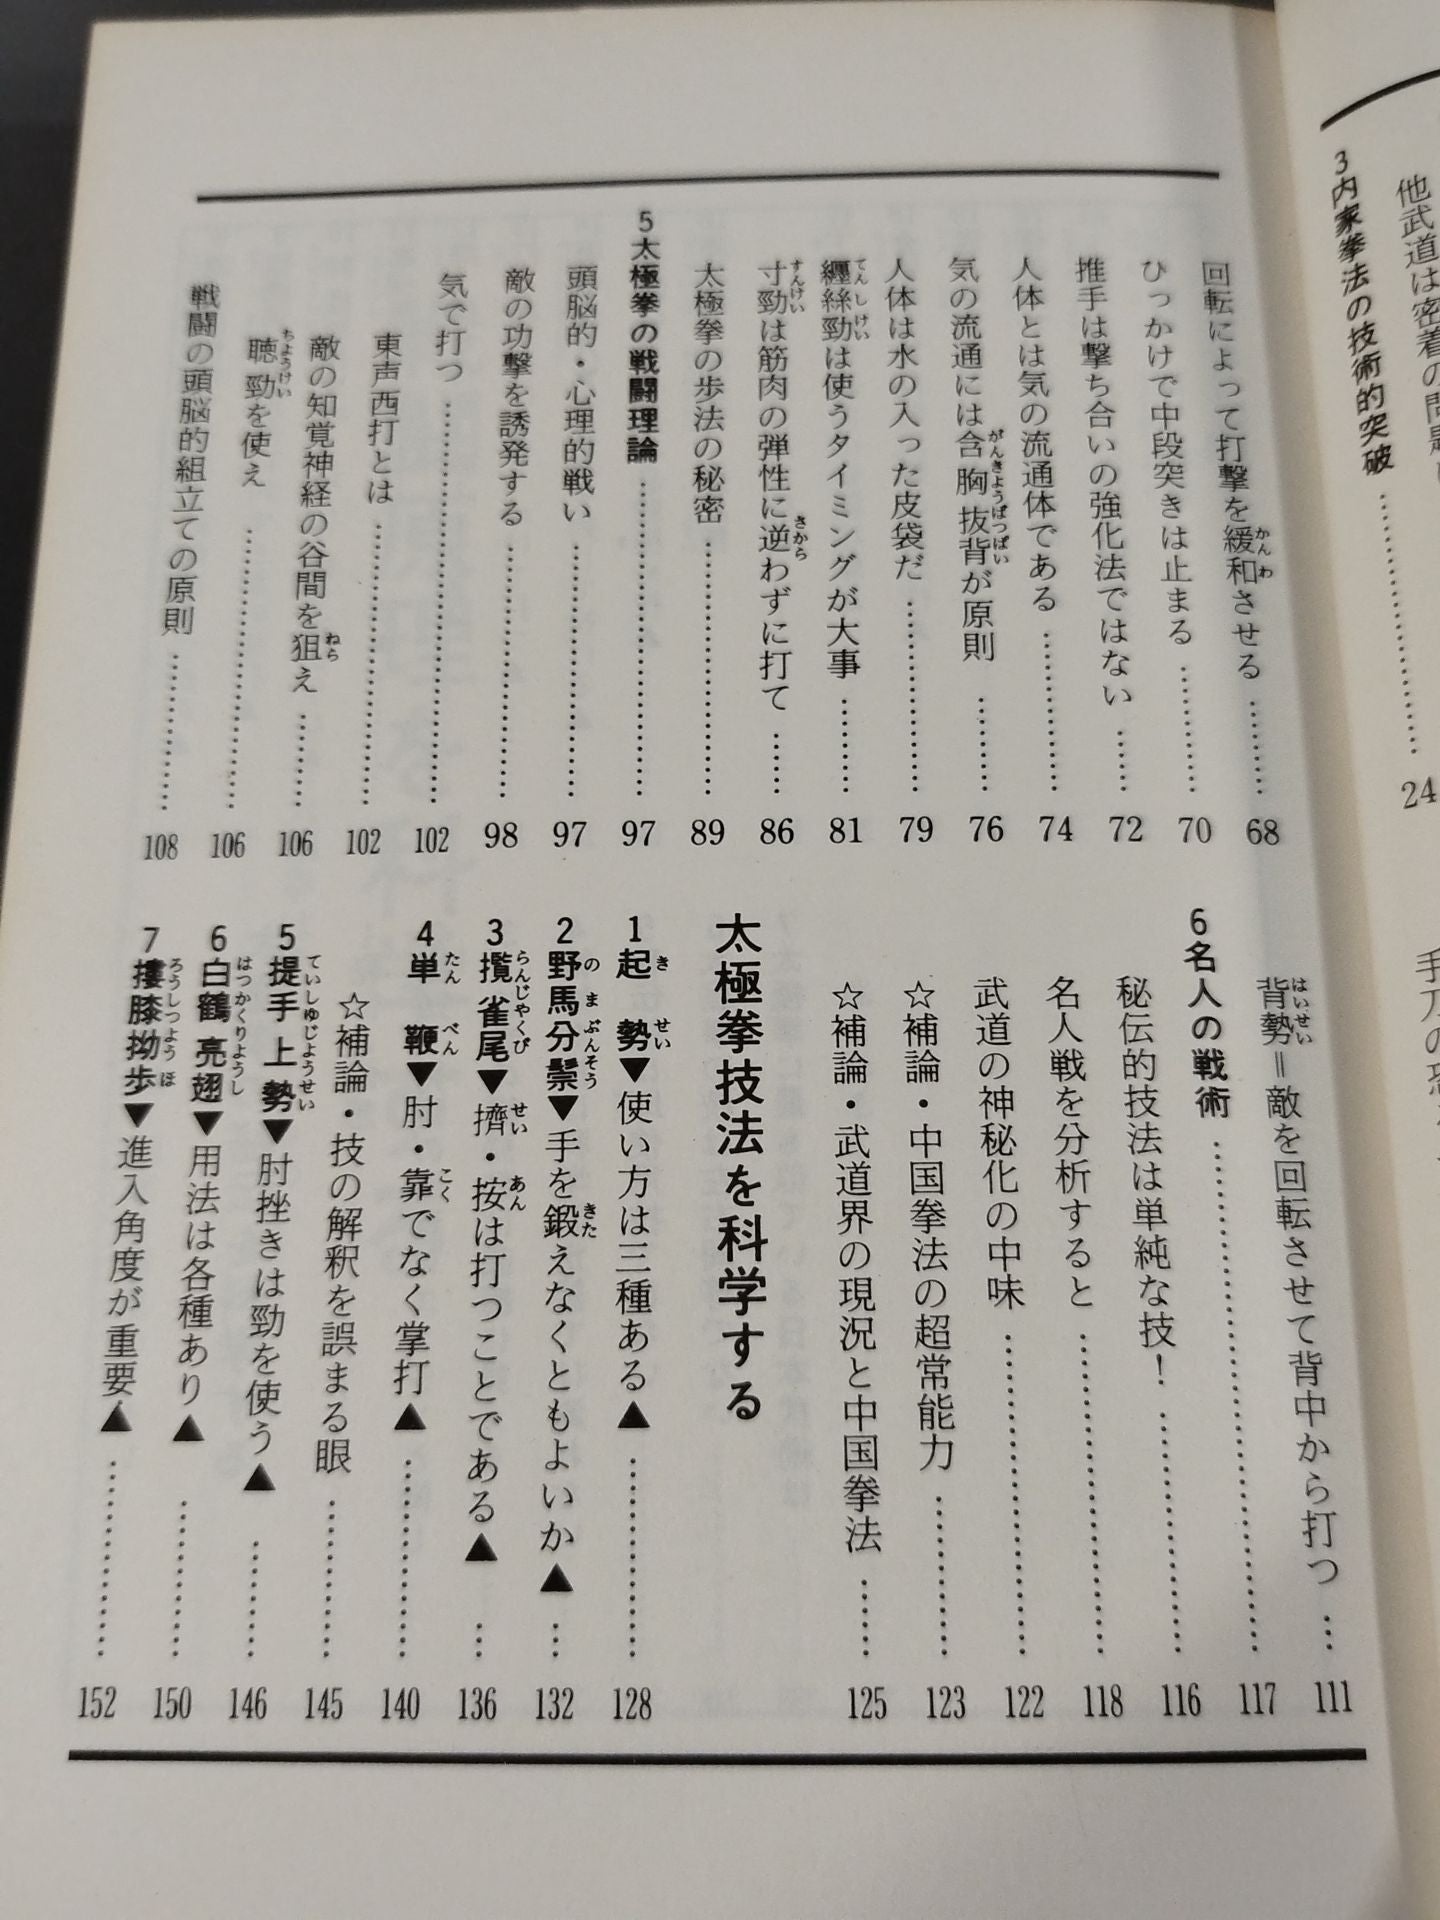 他武道は密着の問題
3内家拳法の技術的突破……………24
回転によって打撃を緩和させる…………68
ひっかけで中段突きは止まる…………70
推手は撃ち合いの強化法ではない…………72
人体とは気の流通体である…………74
気の流通には含胸抜背が原則…………76
人体は水の入った皮袋だ…………79
纒絲勁は使うタイミングが大事…………81
寸勁は筋肉の弾性に逆わずに打て…………86
太極拳の歩法の秘密…………89
5太極拳の戦闘理論…………97
頭脳的・心理的戦い…………97
敵の功撃を誘発する…………98
気で打つ…………102
東声西打とは…………102
敵の知覚神経の谷間を狙え…………106
聴勁を使え…………106
戦闘の頭脳的組立ての原則…………108
手刀の
背勢＝敵を回転させて背中から打つ…111
6名人の戦術…………117
秘伝的技法は単純な技！…………116
名人戦を分析すると…………118
武道の神秘化の中味…………122
☆補論・中国拳法の超常能力…………123
☆補論・武道界の現況と中国拳法……125
太極拳技法を科学する
1起　勢▼使い方は三種ある▲…………128
2野馬分鬃▼手を鍛えなくともよいか▲…132
3攬雀尾▼擠・按は打つことである▲…136
4単　鞭▼肘・靠でなく掌打▲…………140
☆補論・技の解釈を誤まる眼…………145
5提手上勢▼肘挫きは勁を使う▲…………146
6白鶴亮翅▼用法は各種あり▲…………150
7摟膝拗歩▼進入角度が重要▲…………152